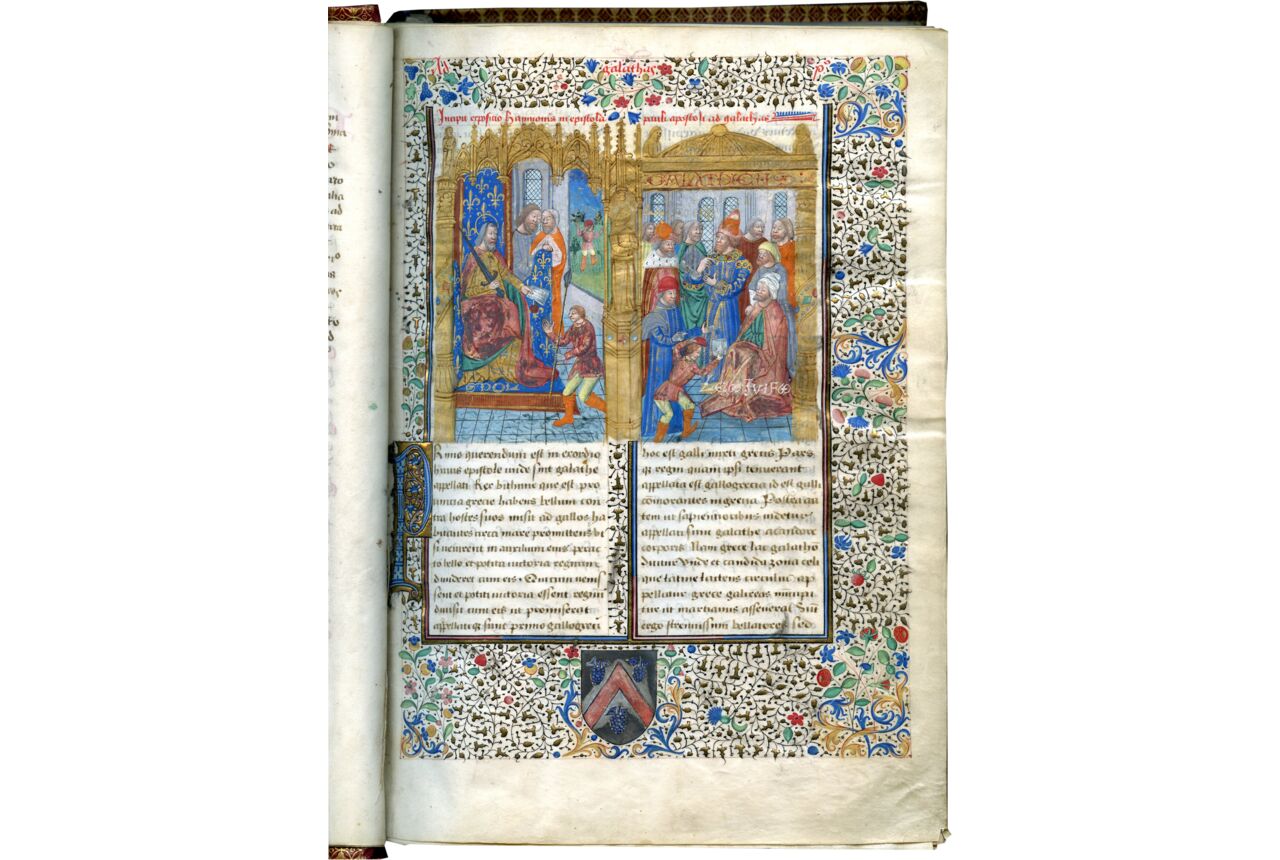 Ad galathas
Incipit expositio haymonis in epistolā pauli apostoli ad galathas
GALATHE
Rimo querendum est in exordio
huius epistole unde sint galathe
appellati Rex bithinie que est pro
uincia grecie habens bellum con
tra hostes suos misit ad gallos ha
bitantes circa mare promittens ut
si uenirent in auxilium eius perac
to bello et potita uictoria regnum
diuideret cum eis. Qui cum uenis
sent et potiti uictoria essent regnū
diuisit cum eis ut promiserat
appellatiq sunt primo gallogreci
hoc est galli mixti grecis Pars
q regni quam ipsi tenuerant
appellata est gallogrecia id est galli
cōmorantes in grecia. Postea au
tem ut sapientioribus uidetur
appellati sunt galathe a candore
corporis. Nam grece lac galathē
dicitur Unde et candida zona celi
que latine lacteus circulus ap
pellatur grece galaxeas nūcupa
tur ut martianus asserit Sūt
ergo strenuissimi bellatores sed